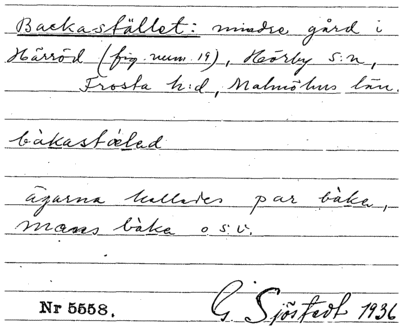 Backastället: mindre gård i
Härröd (fig. num. 19), Hörby s:n,
Frosta h:d, Malmöhus län.
bàkastǽlad
ägarna kallades par bàka,
måns bàka o s.v.
Nr 5558. G. Sjöstedt 1936